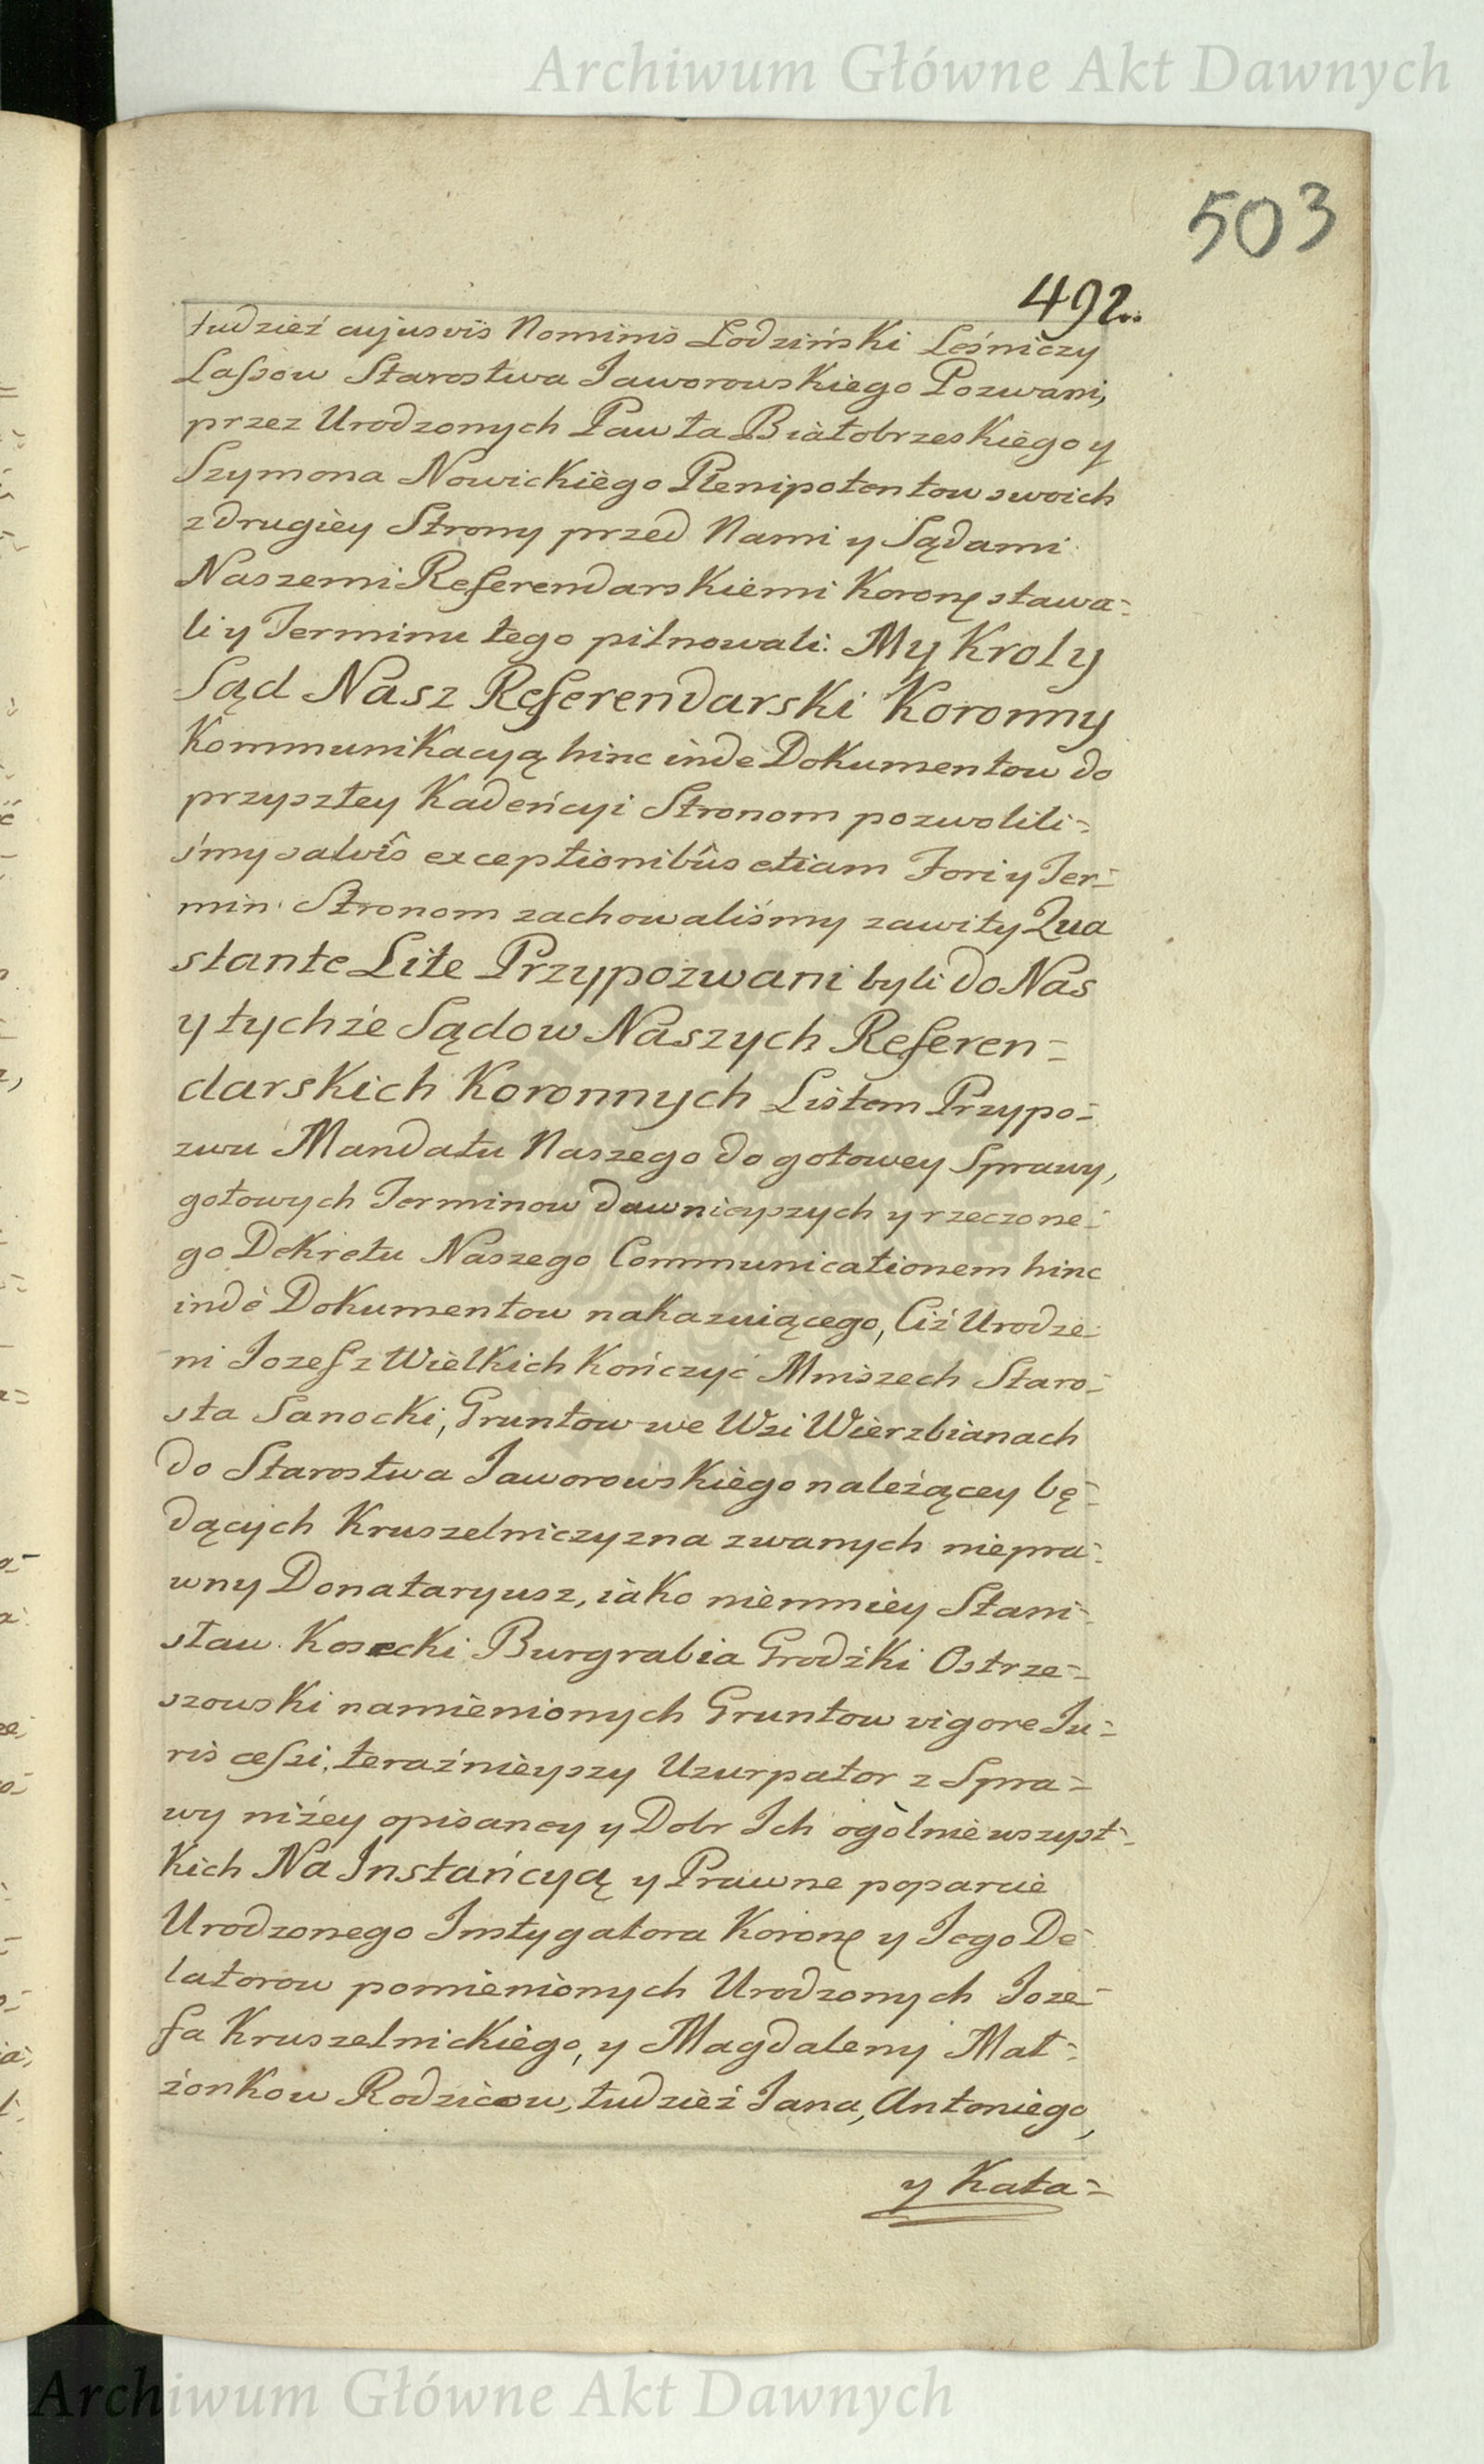 Archiwum Główne Akt Dawnych
503
492.
tudzież cujusvis Nominis Łodziński Leśniczy
Lassow Starostwa Jaworowskiego Pozwani,
przez Urodzonych Pawła Białobrzeskiego y
Szymona Nowickiego Plenipotentow swoich
z drugiey Strony przed Nami y Sądami
Naszemi Referendarskiemi Koronę stawa=
li y Terminu tego pilnowali: My Krol y
Sąd Nasz Referendarski Koronny
Kommunikacyą hinc inde Dokumentow do
przyszłey Kadencyi Stronom pozwolili=
śmy salvis exceptionibus etiam Fori y Ter=
min Stronom zachowaliśmy zawity Qua
stante Lite Przypozwani byli do Nas
y tychże Sądow Naszych Referen=
darskich Koronnych Listem Przypo=
zwu Mandatu Naszego do gotowey Sprawy,
gotowych Terminow dawnieyszych y rzeczone=
go Dekretu Naszego Communicationem hinc
inde Dokumentow nakazuiącego, Ciż Urodze=
ni Jozef z Wielkich Kończyc Mniszech Staro=
sta Sanocki, Gruntow we Wsi Wierzbianach
do Starostwa Jaworowskiego należącey bę=
dących Kruszelniczyzna zwanych niepra=
wny Donataryusz, iako niemniey Stani=
sław Kosecki Burgrabia Grodzki Ostrze=
szowski namienionych Gruntow vigore Ju=
ris cessi, teraźnieyszy Uzurpator z Spra=
wy niżey opisaney y Dobr Ich ogolnie wszyst=
kich Na Instancyą y Prawne poparcie
Urodzonego Instygatora Koronę y Jego De=
latorow pomienionych Urodzonych Joze=
fa Kruszelnickiego, y Magdaleny Mał=
żonkow Rodzicow, tudzież Jana, Antoniego,
y Kata=
Archiwum Główne Akt Dawnych